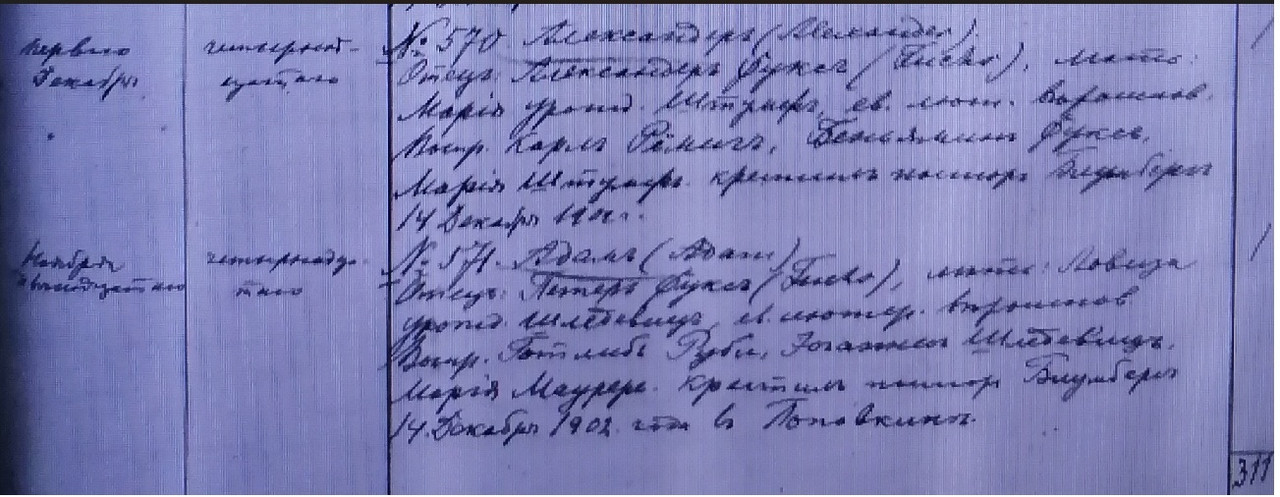 перваго
Декабря
четырнад-
цатаго
№ 570 Александръ (Alexander)
Отецъ: Александеръ Фуксъ (Fuchs), мать:
Марія урожд. Штумпфъ, ев. лют. вѣроисповѣд.
Воспр. Карлъ Рёмигъ, Беньяминъ Фуксъ,
Марія Штумпфъ. крестилъ пасторъ Блумбергъ
14 Декабря 1902 г.
Ноября
двенадцатаго
четырнадца
таго
№ 571. Адамъ (Adam)
Отецъ: Петеръ Фуксъ (Fuchs), мать: Ловиза
урожд. ев. лютер. вѣроисповѣд
Воспр. Готлибъ Іоганнесъ
Марія Мауреръ. Крестилъ пасторъ Блумбергъ
14. Декабря 1902 года въ Поповкинѣ.
311